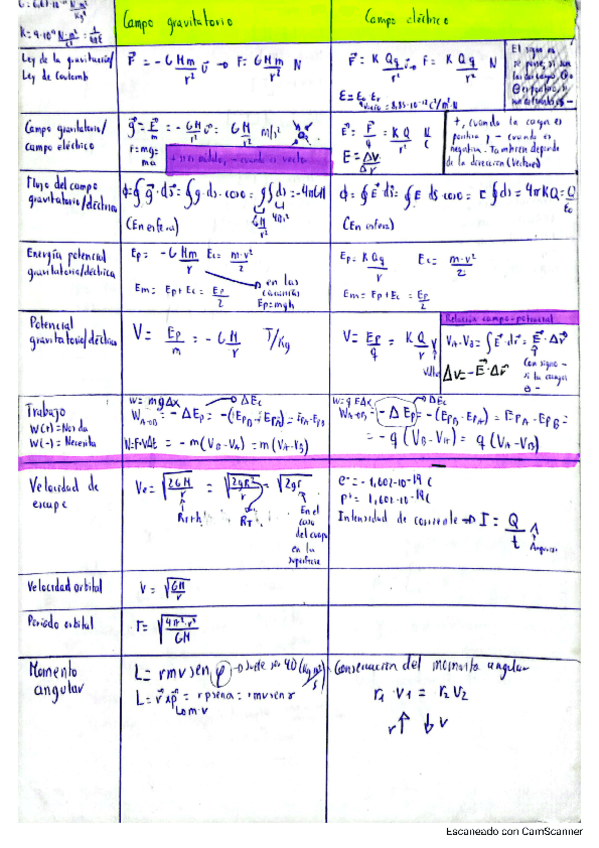 G = 6,67·10⁻¹¹ N·m²/Kg²
K = 9·10⁹ N·m²/C² = 1/4πE
Campo gravitatorio
Campo eléctrico
Ley de la gravitación/
Ley de Coulomb
F = -G Mm/r² u → F = G Mm/r² N
F = K Qq/r² u → F = K Qq/r² N
El signo
se pone si son
Campo gravitatorio/
campo eléctrico
g = F/m = -G M/r² u = G M/r² m/s²
F = mg =
ma
+ en módulo, - cuando es vector
E = F/q = K Q/r² N/C
E = ΔV/Δr
+, cuando la carga es
positiva y - cuando es
negativa. También depende
de la dirección (vectores)
Flujo del campo
gravitatorio/eléctrico
ϕ = ∮ g · ds = ∮ g · ds · cos0 = g ∮ ds = -4πGM
GM/r² 4πr²
(En esfera)
ϕ = ∮ E ds = ∮ E ds · cos0 = E ∮ ds = 4πKQ = Q/ε₀
(En esfera)
Energía potencial
gravitatoria/eléctrica
Ep = -G Mm/r Ec = m·v²/2
Em = Ep + Ec = Ep/2
en las
cercanías
Ep = mgh
Ep = K Qq/r Ec = m·v²/2
Em = Ep + Ec = Ep/2
Potencial
gravitatorio/eléctrico
V = Ep/m = -G M/r J/Kg
V = Ep/q = K Q/r V
Relación campo-potencial
VA - VB = ∫ E · dr = E · Δr
ΔV = -E · Δr
Con signo -
si la carga
es -
Trabajo
W(+) = No da
W(-) = Necesita
W = mgΔx
ΔEc
WA→B = -ΔEp = -(EpB - EpA) = EpA - EpB
W = F·v·Δt = -m(VB - VA) = m(VA - VB)
W = q EΔx
ΔEc
WA→B = -ΔEp = -(EpB - EpA) = EpA - EpB =
= -q(VB - VA) = q(VA - VB)
Velocidad de
escape
Ve = √2GM/r = √2gR²/r = √2gr
RT+h
RT
En el
caso
del cuerpo
en la
superficie
e⁻ = -1,602·10⁻¹⁹ C
p⁺ = 1,602·10⁻¹⁹ C
Intensidad de corriente → I = Q/t A
Amperios
Velocidad orbital
V = √GM/r
Periodo orbital
T = √4π²·r³/GM
Momento
angular
L = r m v sen φ → suele ser 90 (Kg m²/s)
L = r × p = r p senα = r m v sen α
m·v
Conservación del momento angular
r₁ · v₁ = r₂ v₂
r↑ ↓v
Escaneado con CamScanner